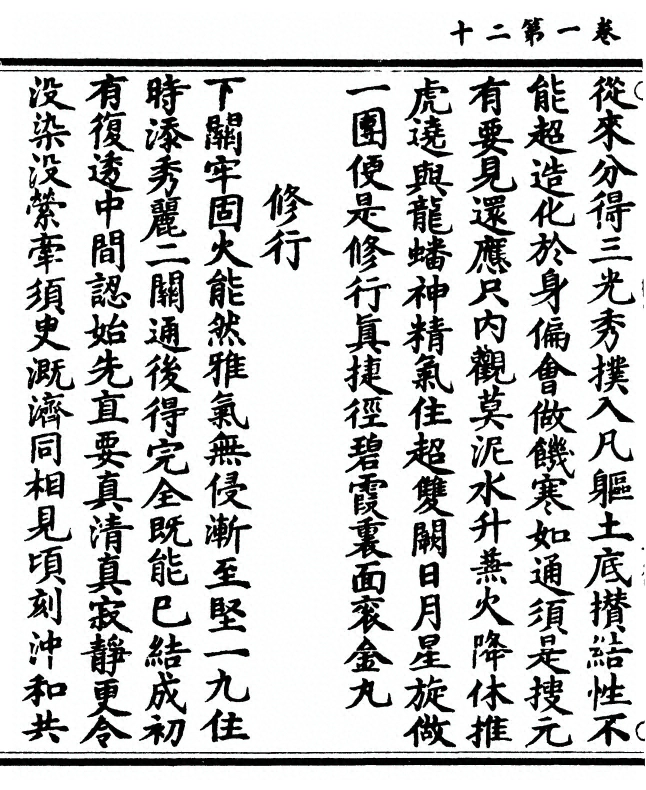 卷一第二十
從來分得三光秀撲入凡軀土底攅結性不
能超造化於身偏會做饑寒如通須是搜元
有要見還應只内觀莫泥水升蕪火降休推
虎遶與龍蟠神精氣住超雙闕日月星旋做
一團便是修行真捷徑碧霞裏面衮金丸
修行
下關牢固火能然雅氣無侵漸至堅一九住
時添秀麗二關通後得完全既能巳結成初
有復透中間認始先直要真清真寂靜更令
没染没縈牽須史溉濟同相見頃刻沖和共